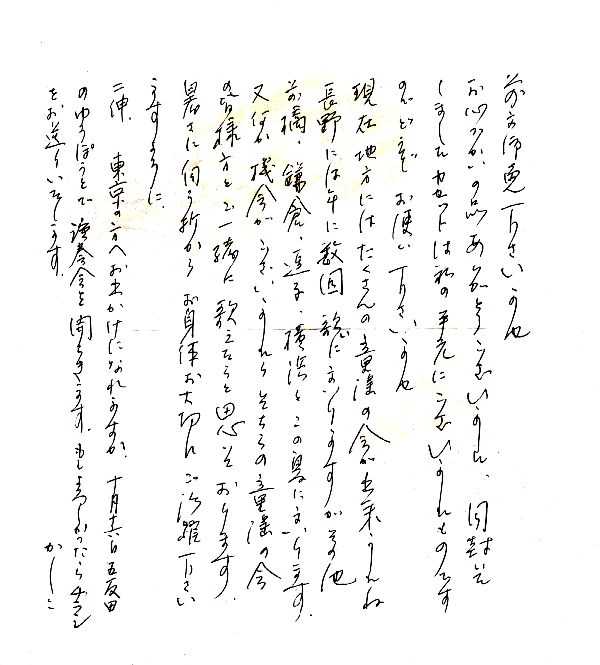 前文御免下さいませ
お心づかいの品ありがとうございました、同封いた
しましたカセットは私の手元にございましたものです
のでどうぞお使い下さいませ
現在地方にはたくさんの童謡の会が出来ましたね
長野には年に数回歌にまいりますがその他
前橋、鎌倉、逗子、横浜とこの夏にまいります。
又何か機会がございましたらそちらの童謡の会
の皆様方と一緒に歌えたらと思っております。
暑さに向う折からお身体お大切にご活躍下さい
ますように
二伸、東京の方へお出かけになれますか、十月十六日五反田
のゆうぽうとで演奏会を開らきます。もしよろしかったらチラシ
をお送りいたします。
かしこ